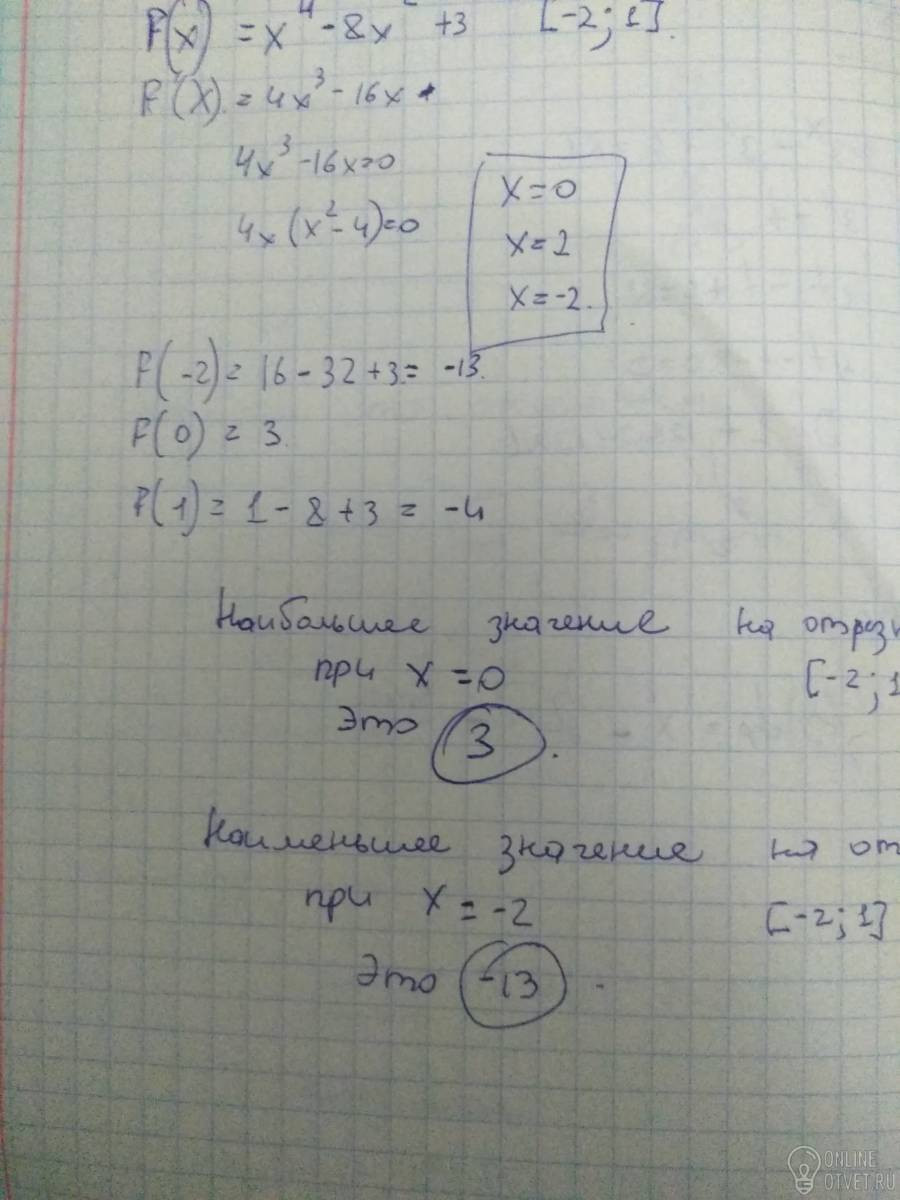 F(x) = x⁴ - 8x² + 3 [-2; 1].
F'(x) = 4x³ - 16x
4x³ - 16x = 0
4x (x² - 4) = 0
x = 0
x = 2
x = -2.
F(-2) = 16 - 32 + 3 = -13.
F(0) = 3.
F(1) = 1 - 8 + 3 = -4
Наибольшее значение на отрезк
при x = 0 [-2; 1
Это 3.
Наименьшее значение на от
при x = -2 [-2; 1]
Это -13.
ONLINE
OTVET.RU